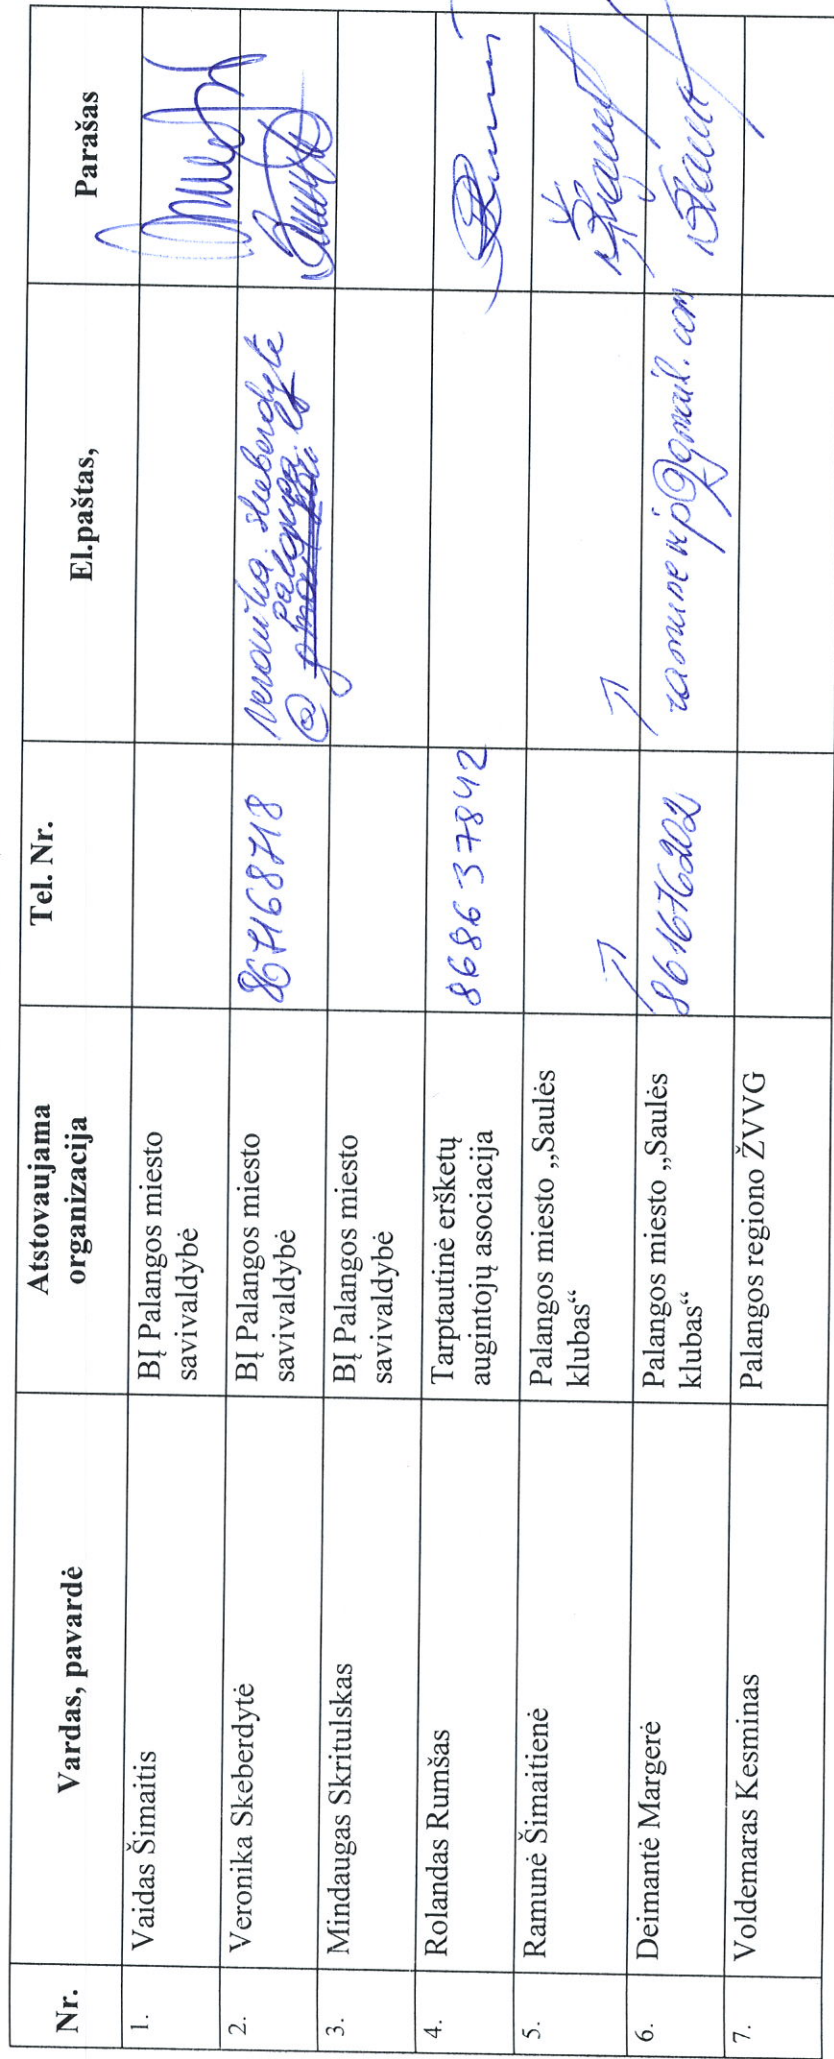 Nr. Vardas, pavardė Atstovaujama organizacija Tel. Nr. El.paštas, Parašas
1. Vaidas Šimaitis BĮ Palangos miesto savivaldybė
2. Veronika Skeberdytė BĮ Palangos miesto savivaldybė 867168718 veronika.skeberdyte
@ palanga.lt
3. Mindaugas Skritulskas BĮ Palangos miesto savivaldybė
4. Rolandas Rumšas Tarptautinė erškėtų augintojų asociacija 868637842
5. Ramunė Šimaitienė Palangos miesto „Saulės klubas“
6. Deimantė Margerė Palangos miesto „Saulės klubas“ 861676202 ramunevip@gmail.com
7. Voldemaras Kesminas Palangos regiono ŽVVG